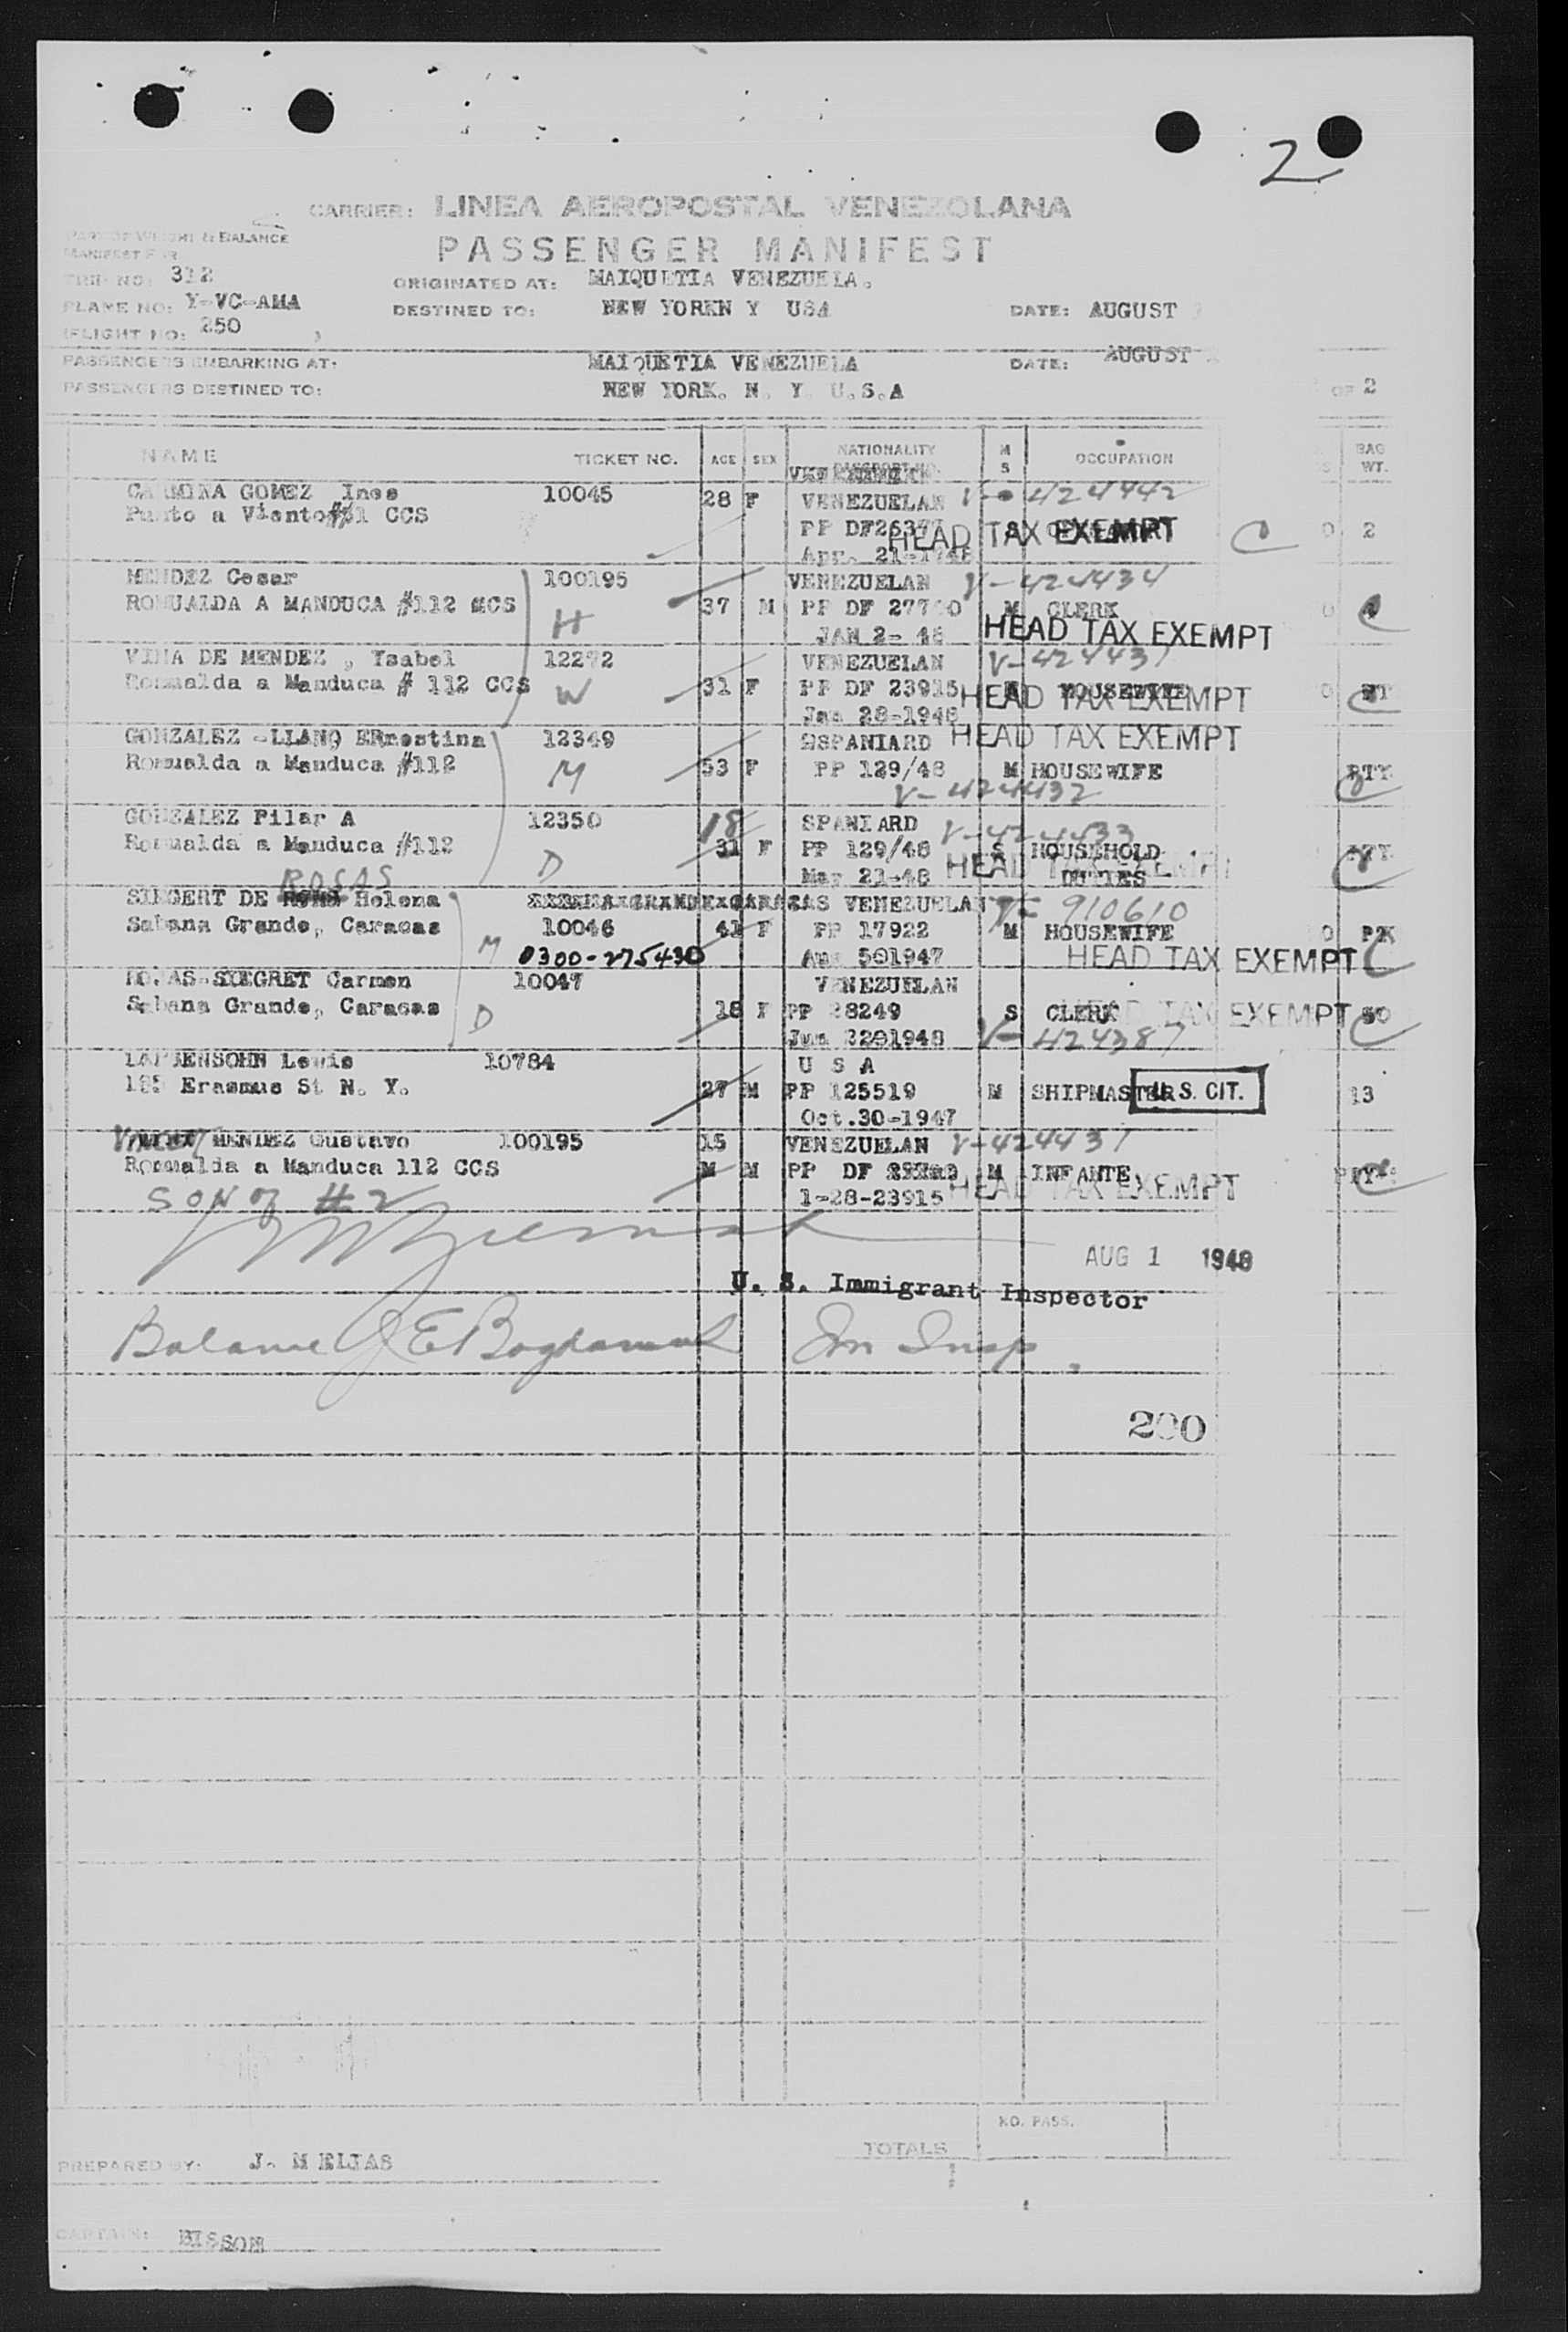 2
CARRIER: LINEA AEROPOSTAL VENEZOLANA
PART OF WEIGHT & BALANCE
PASSENGER MANIFEST
MANIFEST FOR
TRIP NO: 312
ORIGINATED AT: MAIQUETIA VENEZUELA.
PLANE NO: Y-VC-AMA
DESTINED TO: NEW YORKN Y USA DATE: AUGUST
(FLIGHT NO: 250 )
PASSENGERS EMBARKING AT: MAIQUETIA VENEZUELA DATE: AUGUST
PASSENGERS DESTINED TO: NEW YORK. N. Y. U.S.A OF 2
NAME TICKET NO. AGE SEX NATIONALITY M S OCCUPATION BAG WT.
GOMEZ Ines 10045 28 F VENEZUELAN V- 424442
Punto a Viento CCS PP HEAD TAX EXEMPT 2
MENDEZ Cesar 100195 VENEZUELAN V-424434
ROMUALDA A MANDUCA #112 CCS H 37 M PP DF M CLERK
JAN 2- 48 HEAD TAX EXEMPT
DE MENDEZ , Ysabel VENEZUELAN
Romualda a Manduca # 112 CCS W 31 F PP DF 23915 HOUSEWIFE HEAD TAX EXEMPT
Jan 28-1948
GONZALEZ -LLANO ERnestina 12349 SPANIARD HEAD TAX EXEMPT
Romualda a Manduca #112 M 53 F PP 129/48 M HOUSEWIFE
V-424432
GONZALEZ Pilar A 12350 18 SPANIARD V-424433
Romualda a Manduca #112 D 31 F PP 129/48 S HOUSEHOLD
May 21-48 DUTIES HEAD TAX EXEMPT
ROSAS
DE Helena VENEZUELAN V- 910610
Sabana Grande, Caracas 10046 41 F PP 17922 M HOUSEWIFE
M 0300-275430 HEAD TAX EXEMPT
Carmen 10047 VENEZUELAN
Sabana Grande, Caracas D 18 F PP 28249 S CLERK HEAD TAX EXEMPT
V-424387
Lewis 10784 U S A
Erasmus St N. Y. 27 M PP 125519 M SHIPMASTER U. S. CIT. 13
Oct.30-1947
MENDEZ Gustavo 100195 15 VENEZUELAN V-424431
Romualda a Manduca 112 CCS M M PP DF M INFANTE
SON of #2 1-28-23915 HEAD TAX EXEMPT
AUG 1 1948
U. S. Immigrant Inspector
Balance Im Insp.
NO. PASS.
TOTALS
PREPARED BY: J. M ELIAS
CAPTAIN: BISSON